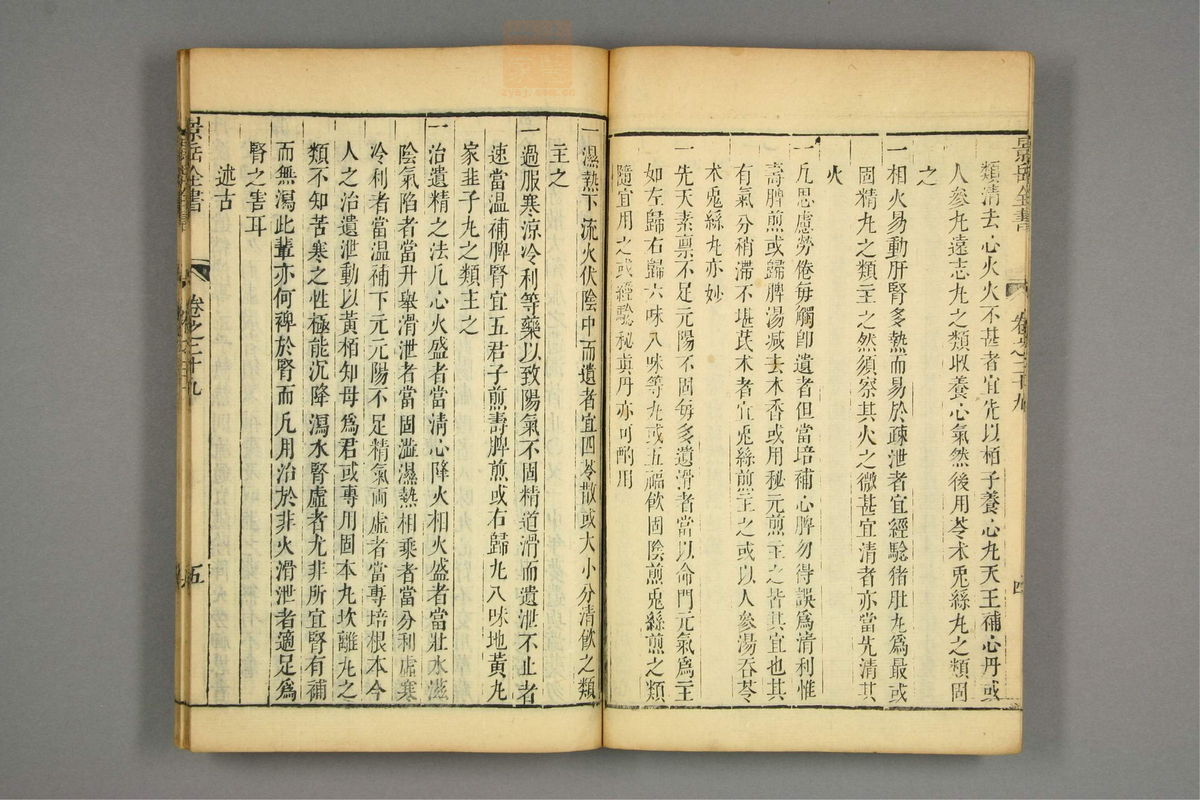 景岳全書
卷之二十九
四
類清去心火火不甚者宜先以栢子養心丸天王補心丹或
人參丸遠志丸之類收養心氣然後用苓朮兎絲丸之類固
之
一相火易動肝腎多熱而易於疎泄者宜經驗猪肚丸為最或
固精丸之類主之然須察其火之微甚宜清者亦當先清其
火
一凢思慮勞倦每觸卽遺者但當培補心脾勿得誤為清利惟
壽脾煎或歸脾湯减去木香或用秘元煎主之皆其宜也其
有氣分稍滯不堪芪术者宜兎絲煎主之或以人參湯吞苓
术兎絲丸亦妙
一先天素禀不足元陽不固每多遺滑者當以命門元氣為主
如左歸右歸六味八味等丸或五福飲固陰煎兎絲煎之類
隨宜用之或經驗秘真丹亦可酌用
一濕熱下流火伏陰中而遺者宜四苓散或大小分清飲之類
主之
一過服寒涼冷利等藥以致陽氣不固精道滑而遺泄不止者
速當温補脾腎宜五君子煎壽脾煎或右歸丸八味地黃丸
家韭子丸之類主之
一治遺精之法凢心火盛者當清心降火相火盛者當壯水滋
陰氣陷者當升舉滑泄者當固澁濕熱相乘者當分利虛寒
冷利者當温補下元元陽不足精氣兩虛者當專培根本今
人之治遺泄動以黃栢知母爲君或專用固本丸坎離丸之
類不知苦寒之性極能沉降瀉水腎虛者尤非所宜腎有補
而無瀉此輩亦何裨於腎而凢用治於非火滑泄者適足爲
腎之害耳
述古
景岳全書
卷之二十九
五